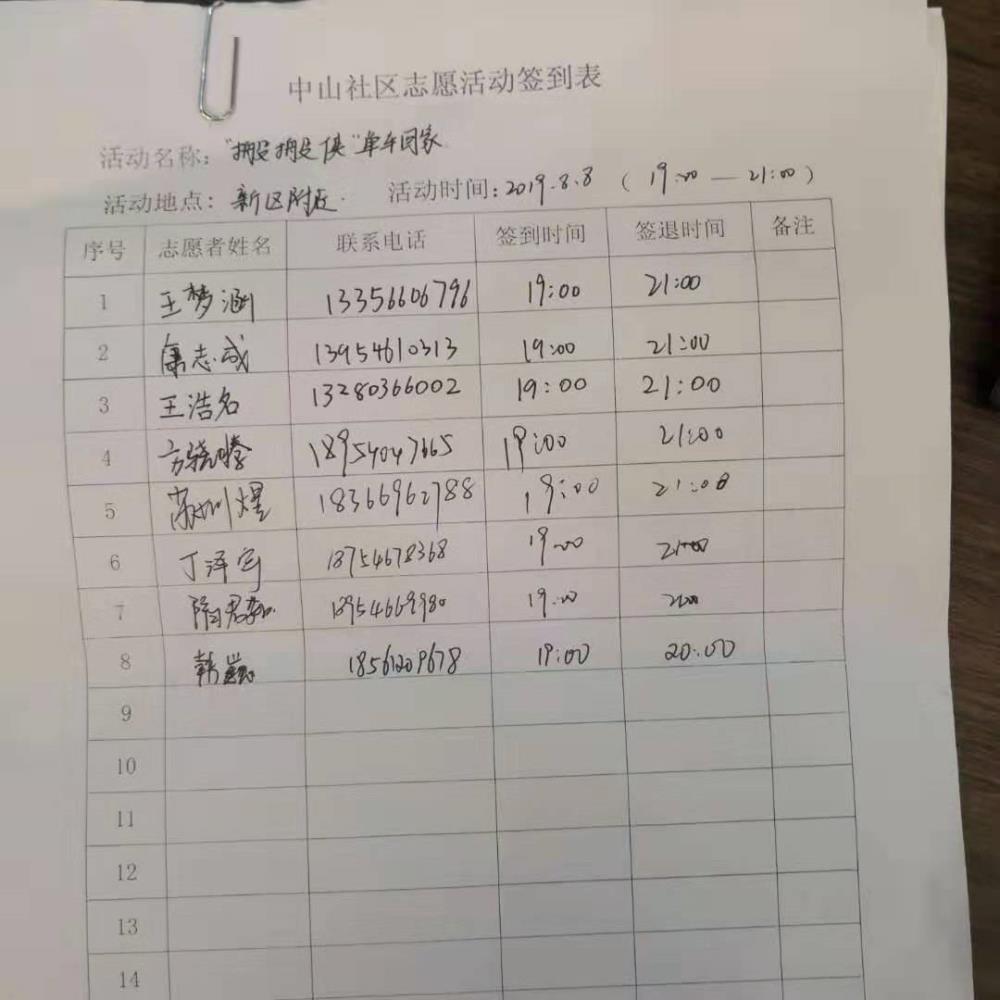 中山社区志愿活动签到表
活动名称："搬搬侠"单车回家
活动地点：新区附近. 活动时间：2019.8.8 （19:00 — 21:00）
序号 志愿者姓名 联系电话 签到时间 签退时间 备注
1 王梦涵 13356606796 19:00 21:00
2 志成 13954610313 19:00 21:00
3 王浩名 13280366002 19:00 21:00
4 18954047665 19:00 21:00
5 18366962788 19:00 21:00
6 丁泽宇 18754678368 19:00 21:00
7 隋君 18954669980 19:00 21:00
8 韩 18561209678 19:00 20:00
9
10
11
12
13
14